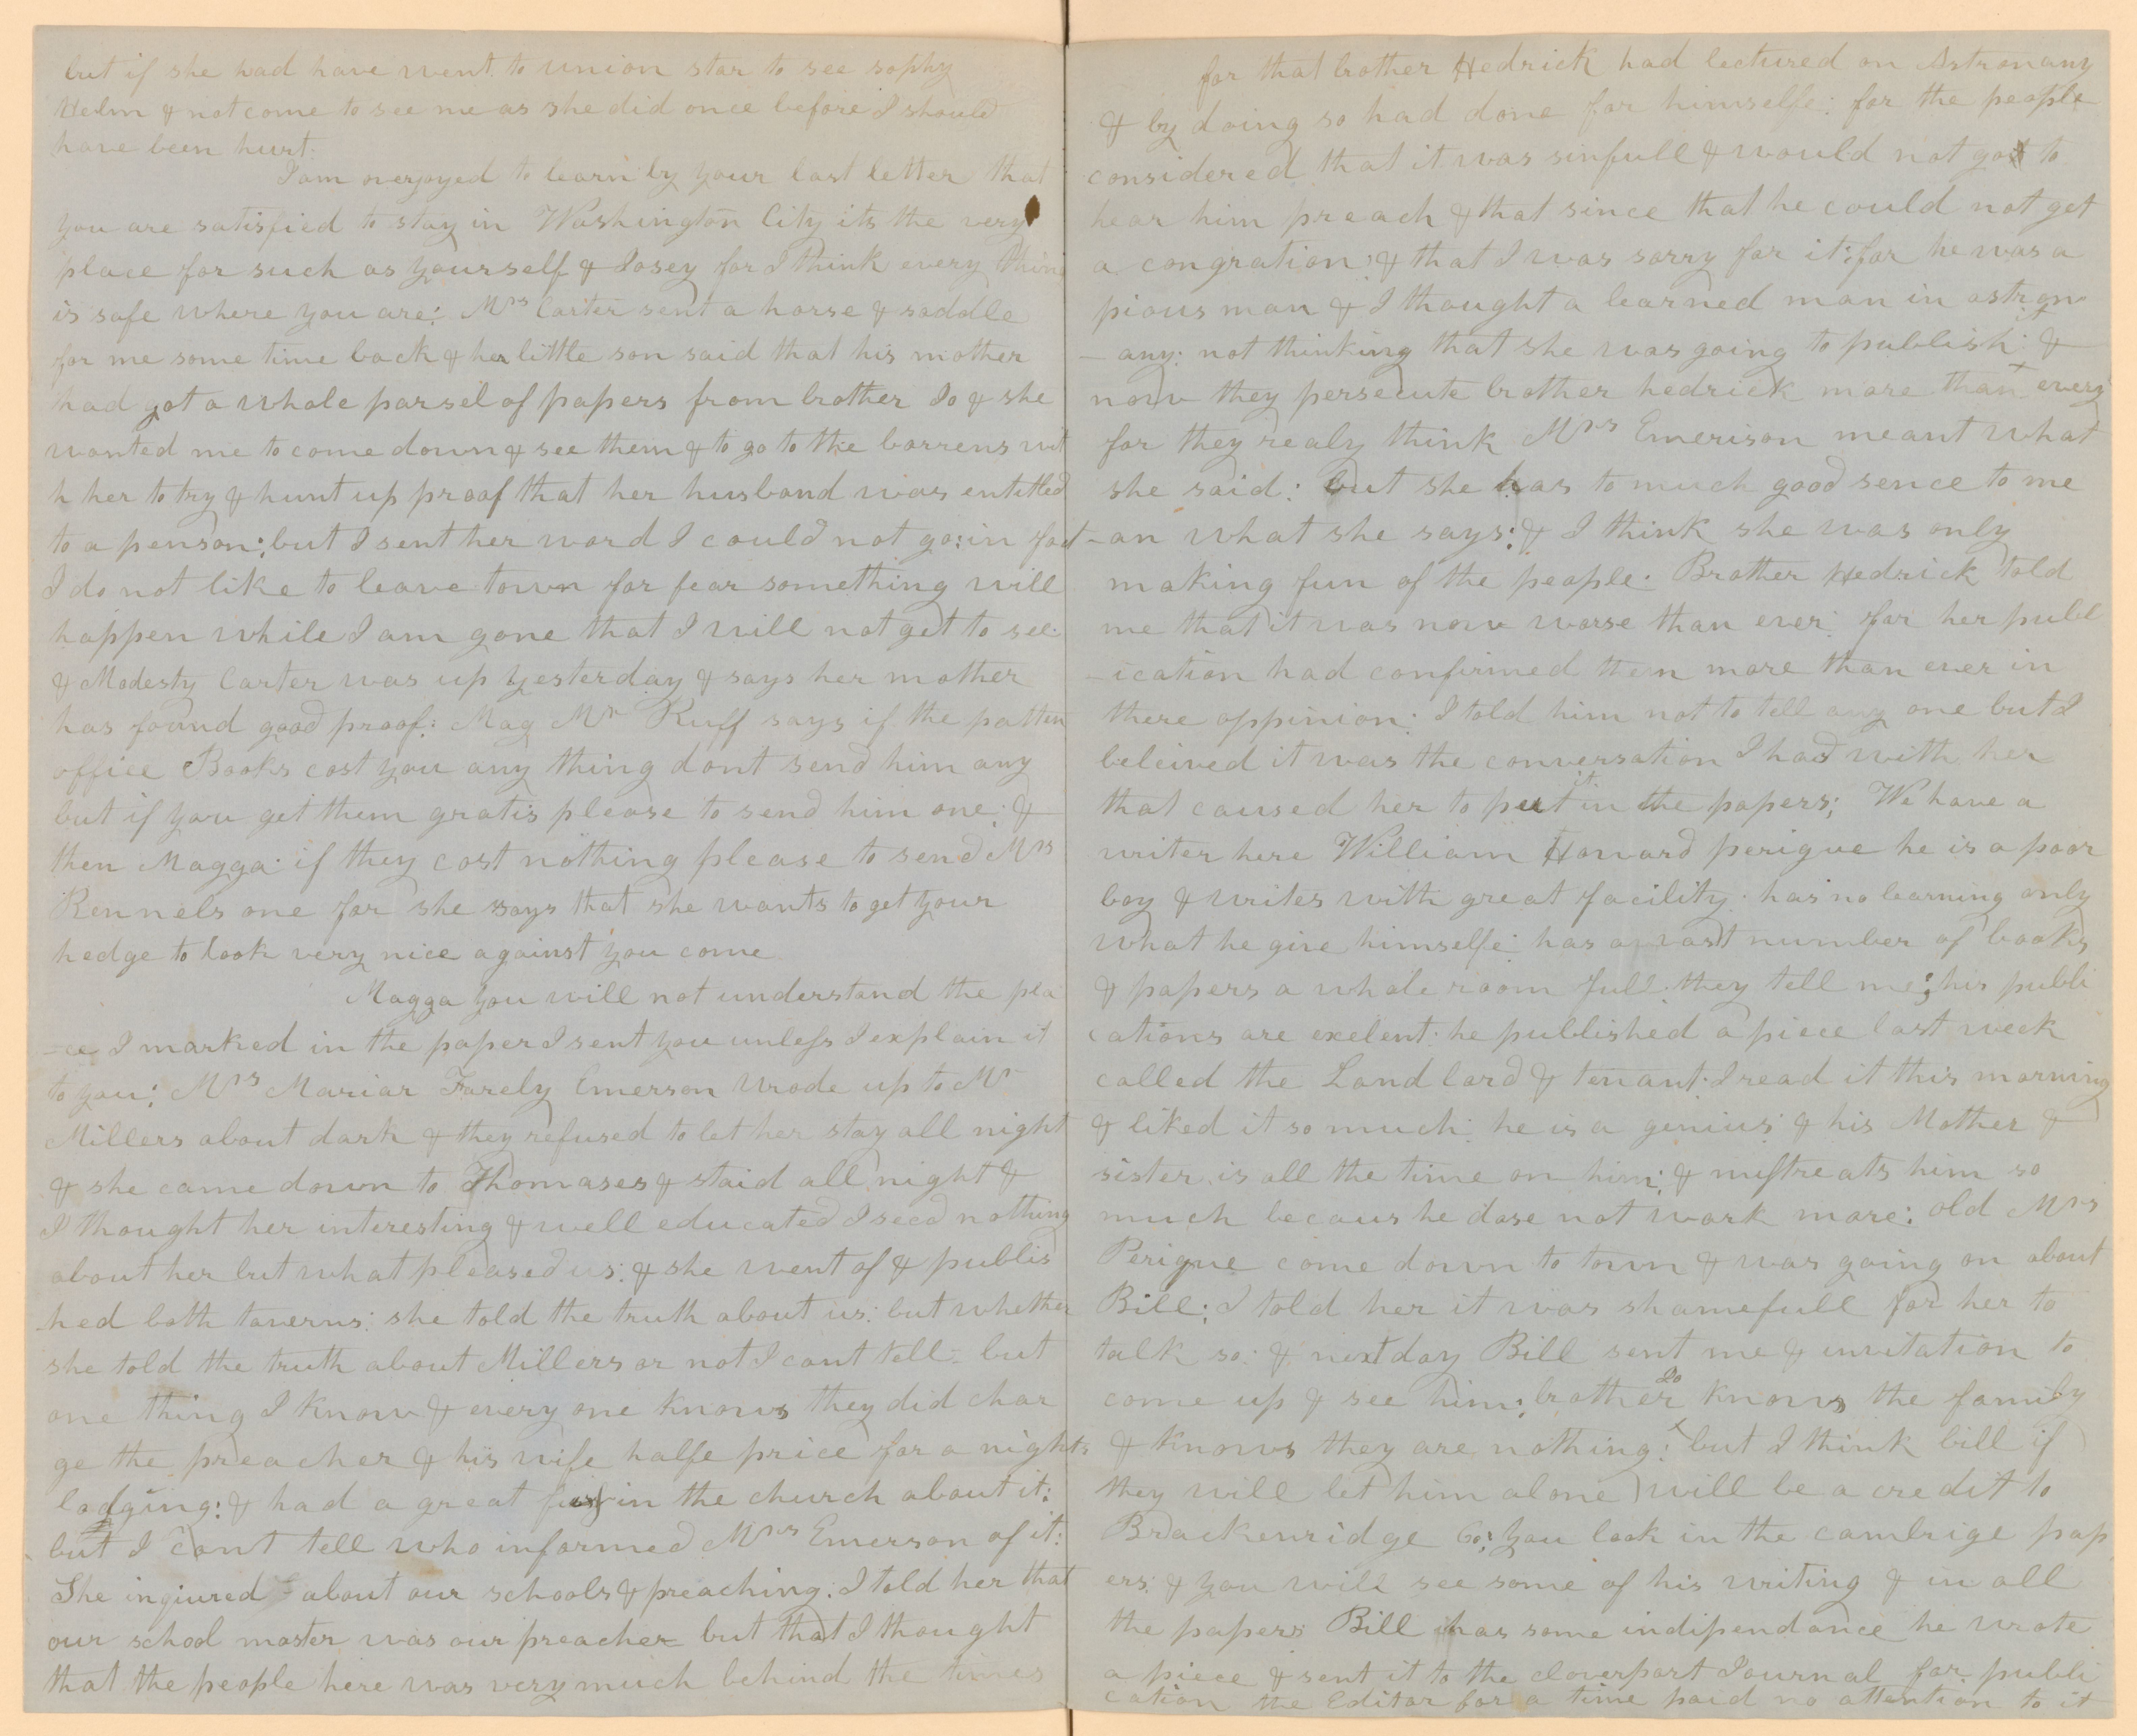 but if she had have went to union star to see sophy
Helm & not come to see me as she did once before I should
have been hurt.
I am overjoyed to learn by your last letter that
you are satisfied to stay in Washington City its the very
place for such as yourself & Josey for I think every thin
is safe where you are: Mrs Carter sent a horse & saddle
for me some time back & her little son said that his mother
had got a whole parsel of papers from brother Jo & she
wanted me to come down & see them & to go to the barrens wit
h her to try & hunt up proof that her husband was entitled
to a penson; but I sent her word I could not go: in fact
I do not like to leave town for fear something will
happen while I am gone that I will not get to see:
& Modesty Carter was up yesterday & says her mother
has found good proof: Mag Mr Ruff says if the patten
office Books cost you any thing dont send him any
but if you get them gratis please to send him one: &
then Magga: if they cost nothing please to send Mrs
Rennels one for she says that she wants to get your
hedge to look very nice against you come
Magga you will not understand the pla
-ce I marked in the paper I sent you unless I explain it
to you: Mrs Mariar Farely Emerson wrode up to Mr
Millers about dark & they refused to let her stay all night
& she came down to Thomases & staid all night &
I thought her interesting & well educated I seed nothing
about her but what pleased us: & she went of & publis
hed both taverns: she told the truth about us: but whether
she told the truth about Millers or not I cant tell: but
one thing I know & every one knows they did char
ge the preacher & his wife halfe price for a nights
lodging: & had a great fuss in the church about it:
but I cant tell who informed Mrs Emerson of it:
She inqiured about our schools & preaching: I told her that
our school master was our preacher but that I thought
that the people here was very much behind the times
for that brother Hedrick had lectured on Astronany
& by doing so had done for himselfe: for the people
considered that it was sinfull & would not go to
hear him preach & that since that he could not get
a congration: & that I was sorry for it: for he was a
pious man & I thought a learned man in astron
-any: not thinking that she was going to publish: &
now they persecute brother hedrick more than every
for they realy think Mrs Emerison meant what
she said: but she has to much good sence to me
-an what she says: & I think she was only
making fun of the people: Brother Hedrick told
me that it was now worse than ever: for her publ
-ication had confirmed then more than ever in
there oppinion: I told him not to tell any one but I
beleived it was the conversation I had with her
that caused her to put it in the papers; We have a
writer here William Howard perigue he is a poor
boy & writes with great facility: has no learning only
what he give himselfe: has a vast number of books
& papers a whole room full they tell me: his publi
cations are exelent: he published a piece last week
called the Land lord & tenant: I read it this morning
& liked it so much: he is a genius: & his Mother &
sister is all the time on him: & mistreats him so
much becaus he dose not work more: old Mrs
Perigue come down to town & was going on about
Bill: I told her it was shamefull for her to
talk so: & next day Bill sent me & invitation to
come up & see him: brother Jo knows the family
& knows they are nothing: but I think bill if
they will let him alone will be a credit to
Brackenridge Co: you look in the cambrige pap
ers: & you will see some of his writing & in all
the papers Bill has some indipendance he wrote
a piece & sent it to the cloverport Journal for publi
cation the Editor for a time paid no attention to it